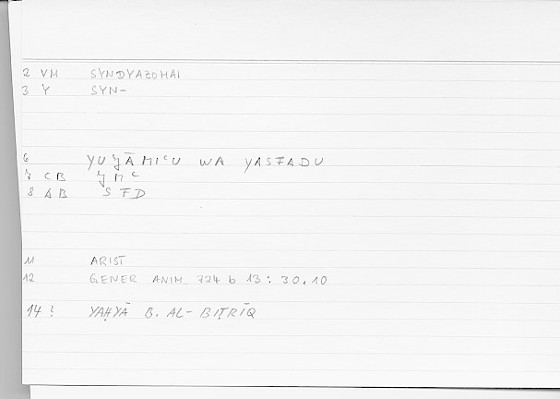 2 VM SYNDYAZOMAI
3 Y SYN-
6 YUǦĀMIᶜU WA YASFADU
7 CB ǦMᶜ
8 AB SFD
11 ARIST
12 GENER ANIM 724 b 13 : 30.10
14 : YAḤYĀ B. AL-BIṬRĪQ